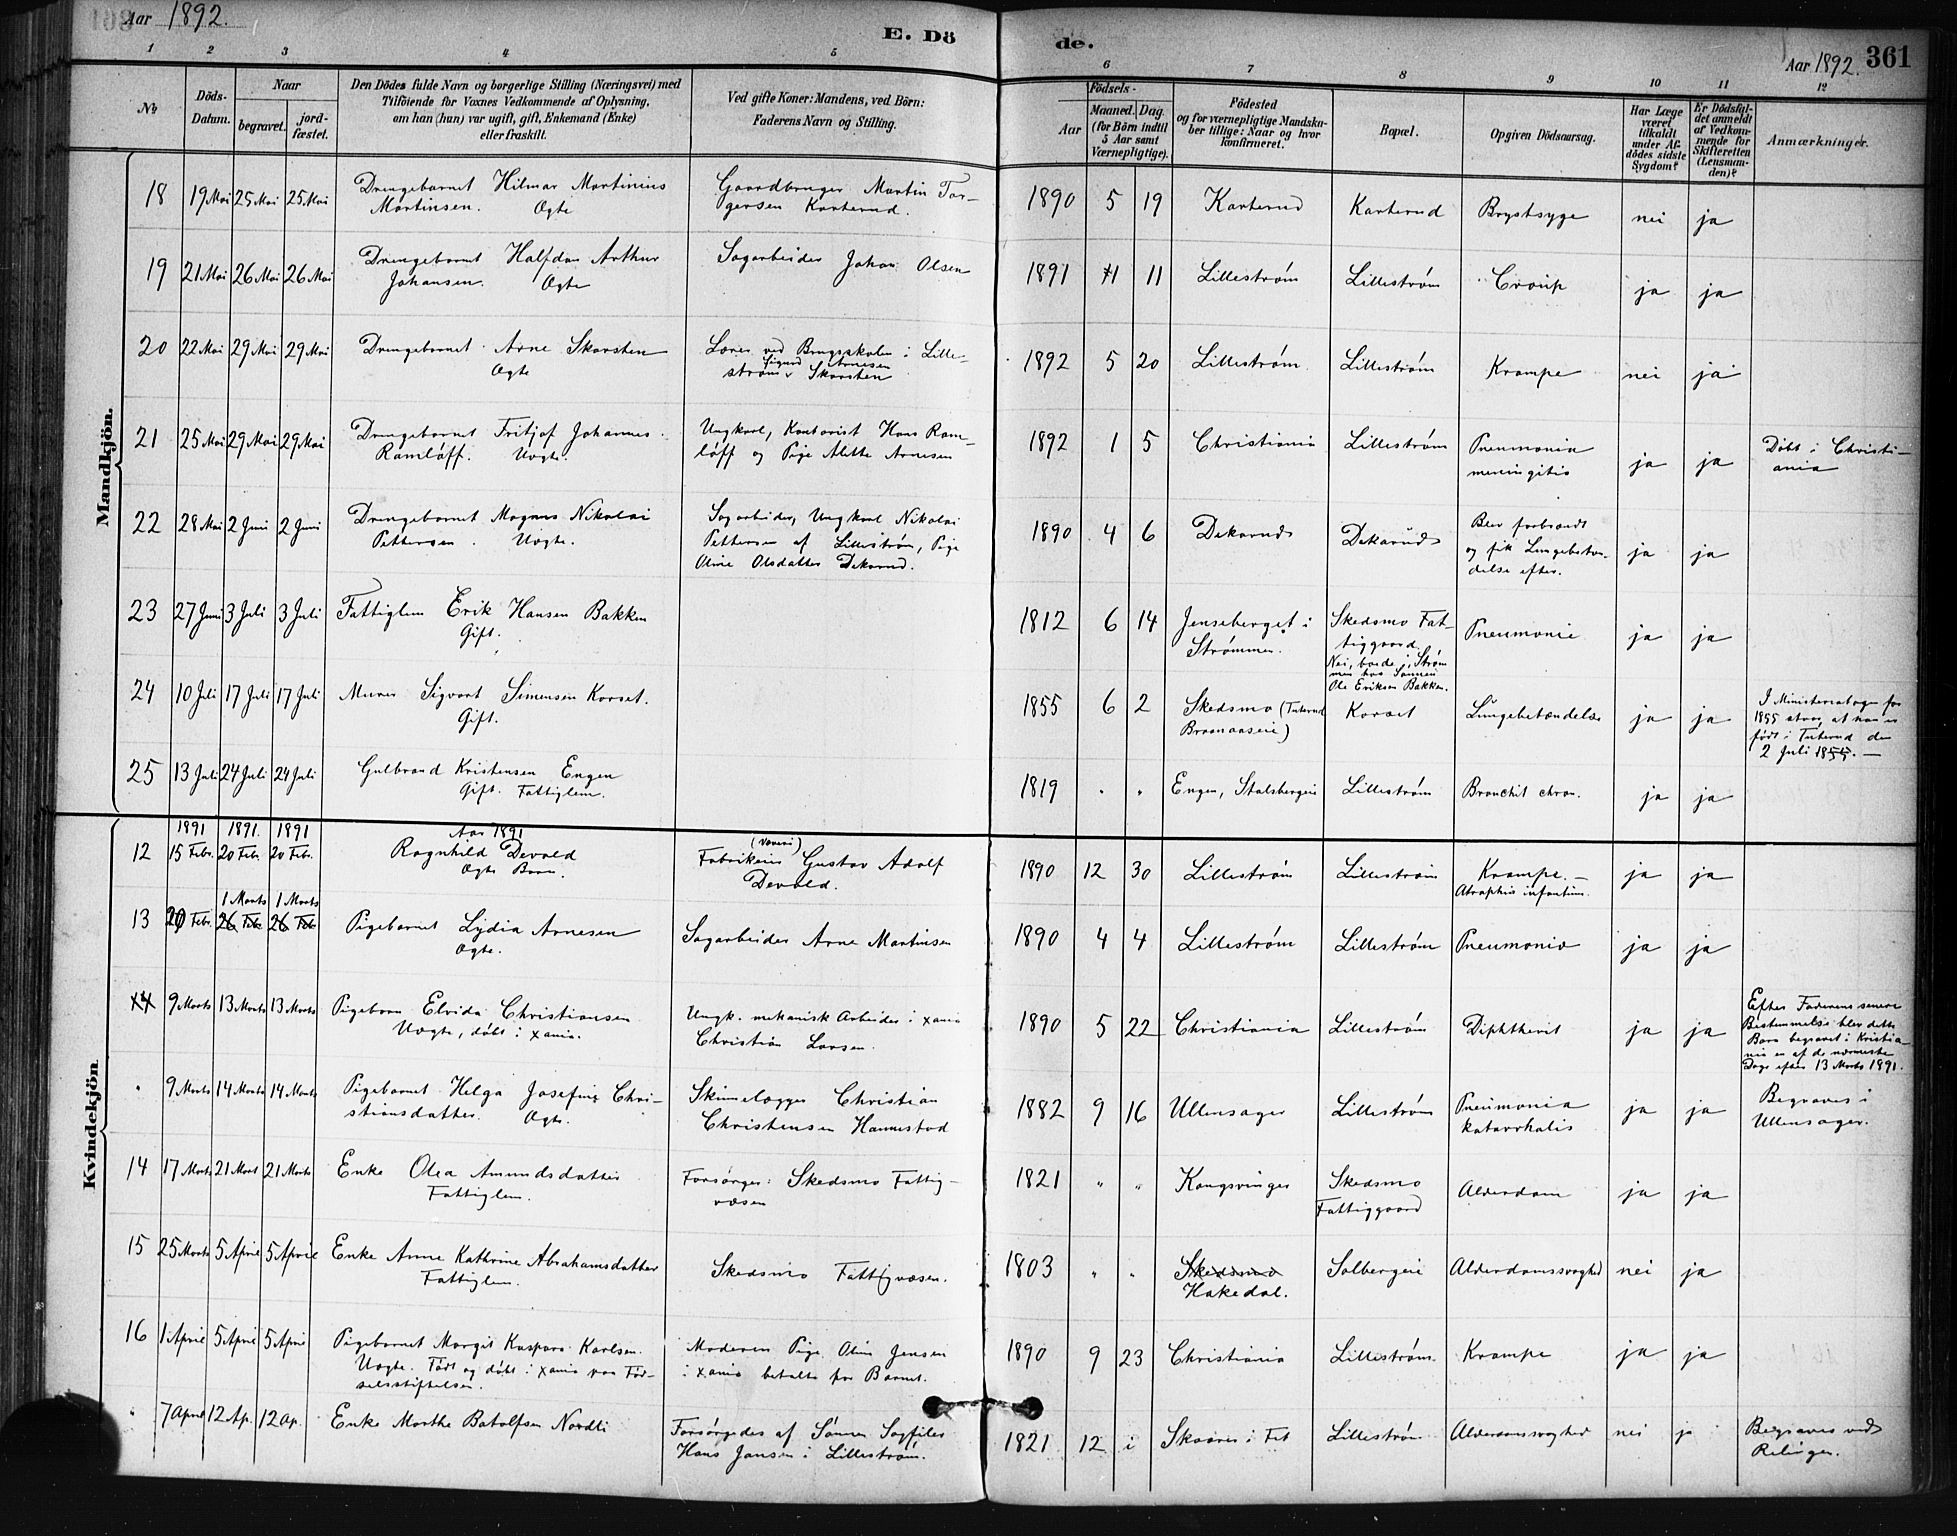 Aar 1892.
E. Dö
de.
Aar 1892. 361
1 2 3 4 5 6 7 8 9 10 11 12
No
Döds-
Datum.
Naar
begravet.
jord-
fæstet.
Den Dödes fulde Navn og borgerlige Stilling (Næringsvei) med
Tilföiende for Voxnes Vedkommende af Oplysning,
om han (hun) var ugift, gift, Enkemand (Enke)
eller fraskilt.
Ved gifte Koner: Mandens, ved Börn:
Faderens Navn og Stilling.
Födsels-
Aar
Maaned. Dag.
(for Börn indtil
5 Aar samt
Værnepligtige).
Födested
og for værnepligtige Mandska-
ber tillige: Naar og hvor
konfirmeret.
Bopæl.
Opgiven Dödsaarsag.
Har Læge
været
tilkaldt
under Af-
dödes sidste
Sygdom?
Er Dödsfal-
det anmeldt
af Vedkom-
mende for
Skifteretten
(Lensman-
den)?
Anmærkninger.
Mandkjön.
18 19 Mai 25 Mai 25 Mai Drengebarnet Hilmar Martinius
Martinsen. Ægte
Gaardbruger Martin Tor-
gersen Karterud.
1890 5 19 Karterud Karterud Brystsyge nei ja
19 21 Mai 26 Mai 26 Mai Drengebarnet Halfdan Arthur
Johansen. Ægte
Sagarbeider Johan Olsen
1891 11 11 Lillestrøm Lillestrøm Croup ja ja
20 22 Mai 29 Mai 29 Mai Drengebarnet Arne Skarsten
Ægte
Lærer ved Brugsskolen i Lille-
strøm Sigurd Arnesen
Skarsten
1892 5 20 Lillestrøm Lillestrøm Krampe nei ja
21 25 Mai 29 Mai 29 Mai Drengebarnet Fritjof Johannes
Ramløff. Uægte.
Ungkarl, Kontorist Hans Ram-
løff og Pige Alette Arnesen
1892 1 5 Christiania Lillestrøm Pneumonia
meningitis
ja ja Døbt i Christi-
ania
22 28 Mai 2 Juni 2 Juni Drengebarnet Magnus Nikolai
Pettersen. Uægte.
Sagarbeider, Ungkarl Nikolai
Pettersen af Lillestrøm, Pige
Oline Olsdatter Dekarud.
1890 4 6 Dekarud Dekarud Blev forbrændt
og fik Lungebetæn-
delse efter.
ja ja
23 27 Juni 3 Juli 3 Juli Fattiglem Erik Hansen Bakken
Gift.
1812 6 14 Jenseberget i
Strømmen.
Skedsmo Fat-
tiggaard.
Nei, boede i Strøm
men hos Sønnen
Ole Eriksen Bakken.
Pneumonie ja ja
24 10 Juli 17 Juli 17 Juli Murer Sigvart Simensen Korset.
Gift.
1855 6 2 Skedsmo (Tuterud
Braanaaseie)
Korset Lungebetændelse ja ja
I Ministerialbogen for
1855 staar, at han er
født i Tuterud den
2 Juli 1855. —
25 13 Juli 24 Juli 24 Juli Gulbrand Kristensen Engen
Gift. Fattiglem.
1819 " " Engen, Stalsbergeie Lillestrøm Bronchit chron. ja ja
Kvindekjön
1891 1891. 1891 Aar 1891
12 15 Febr. 20 Febr. 20 Febr. Ragnhild Devold
Ægte Barn.
(Væveri)
Fabrikeier Gustav Adolf
Devold.
1890 12 30 Lillestrøm Lillestrøm Krampe. —
Atrophia infantum.
ja ja
1 Marts 1 Marts
13 20 Febr. 26 Feb. 26 Feb. Pigebarnet Lydia Arnesen
Ægte.
Sagarbeider Arne Martinsen
1890 4 4 Lillestrøm Lillestrøm Pneumonia ja ja
14 9 Marts 13 Marts 13 Marts Pigebarn Elvida Christiansen
Uægte, døbt i Xania.
Ungk. mekanisk Arbeider i Xania
Christian Larsen.
1890 5 22 Christiania Lillestrøm Diphtherit ja ja
Efter Faderens senere
Bestemmelse blev dette
Barn begravet i Kristia-
nia en af de nærmeste
Dage efter 13 Marts 1891.
" 9 Marts 14 Marts 14 Marts Pigebarnet Helga Josefine Chri-
stiansdatter. Ægte.
Skinnelægger Christian
Christensen Hannestad
1882 9 16 Ullensager Lillestrøm Pneumonia
katarrhalis
ja ja Begraves i
Ullensager.
14 17 Marts 21 Mart 21 Marts Enke Olea Amundsdatter
Fattiglem.
Forsørger: Skedsmo Fattig-
væsen
1821 " " Kongsvinger Skedsmo
Fattiggaard
Alderdom ja ja
15 25 Marts 5 April 5 April Enke Anne Kathrine Abrahamsdatter
Fattiglem.
Skedsmo Fattigvæsen.
1803 " " Skedsmo
Hakedal.
Solbergeie Alderdomssvaghed nei ja
16 1 April 5 April 5 April Pigebarnet Margit Kaspara Karlsen.
Uægte. Født og døbt i Xania paa Fød-
selsstiftelsen.
Moderen Pige Oline Jensen
i Xania betalte for Barnet.
1890 9 23 Christiania Lillestrøm. Krampe ja ja
" 7 April 12 Ap. 12 Ap. Enke Marthe Botolfsen Nordli
Forsørgedes af Sønnen Sagfiler
Hans Jansen i Lillestrøm.
1821 12 i Skaarer i Fet Lillestrøm Alderdomssvaghed nei ja
Begraves ved
Relingen.